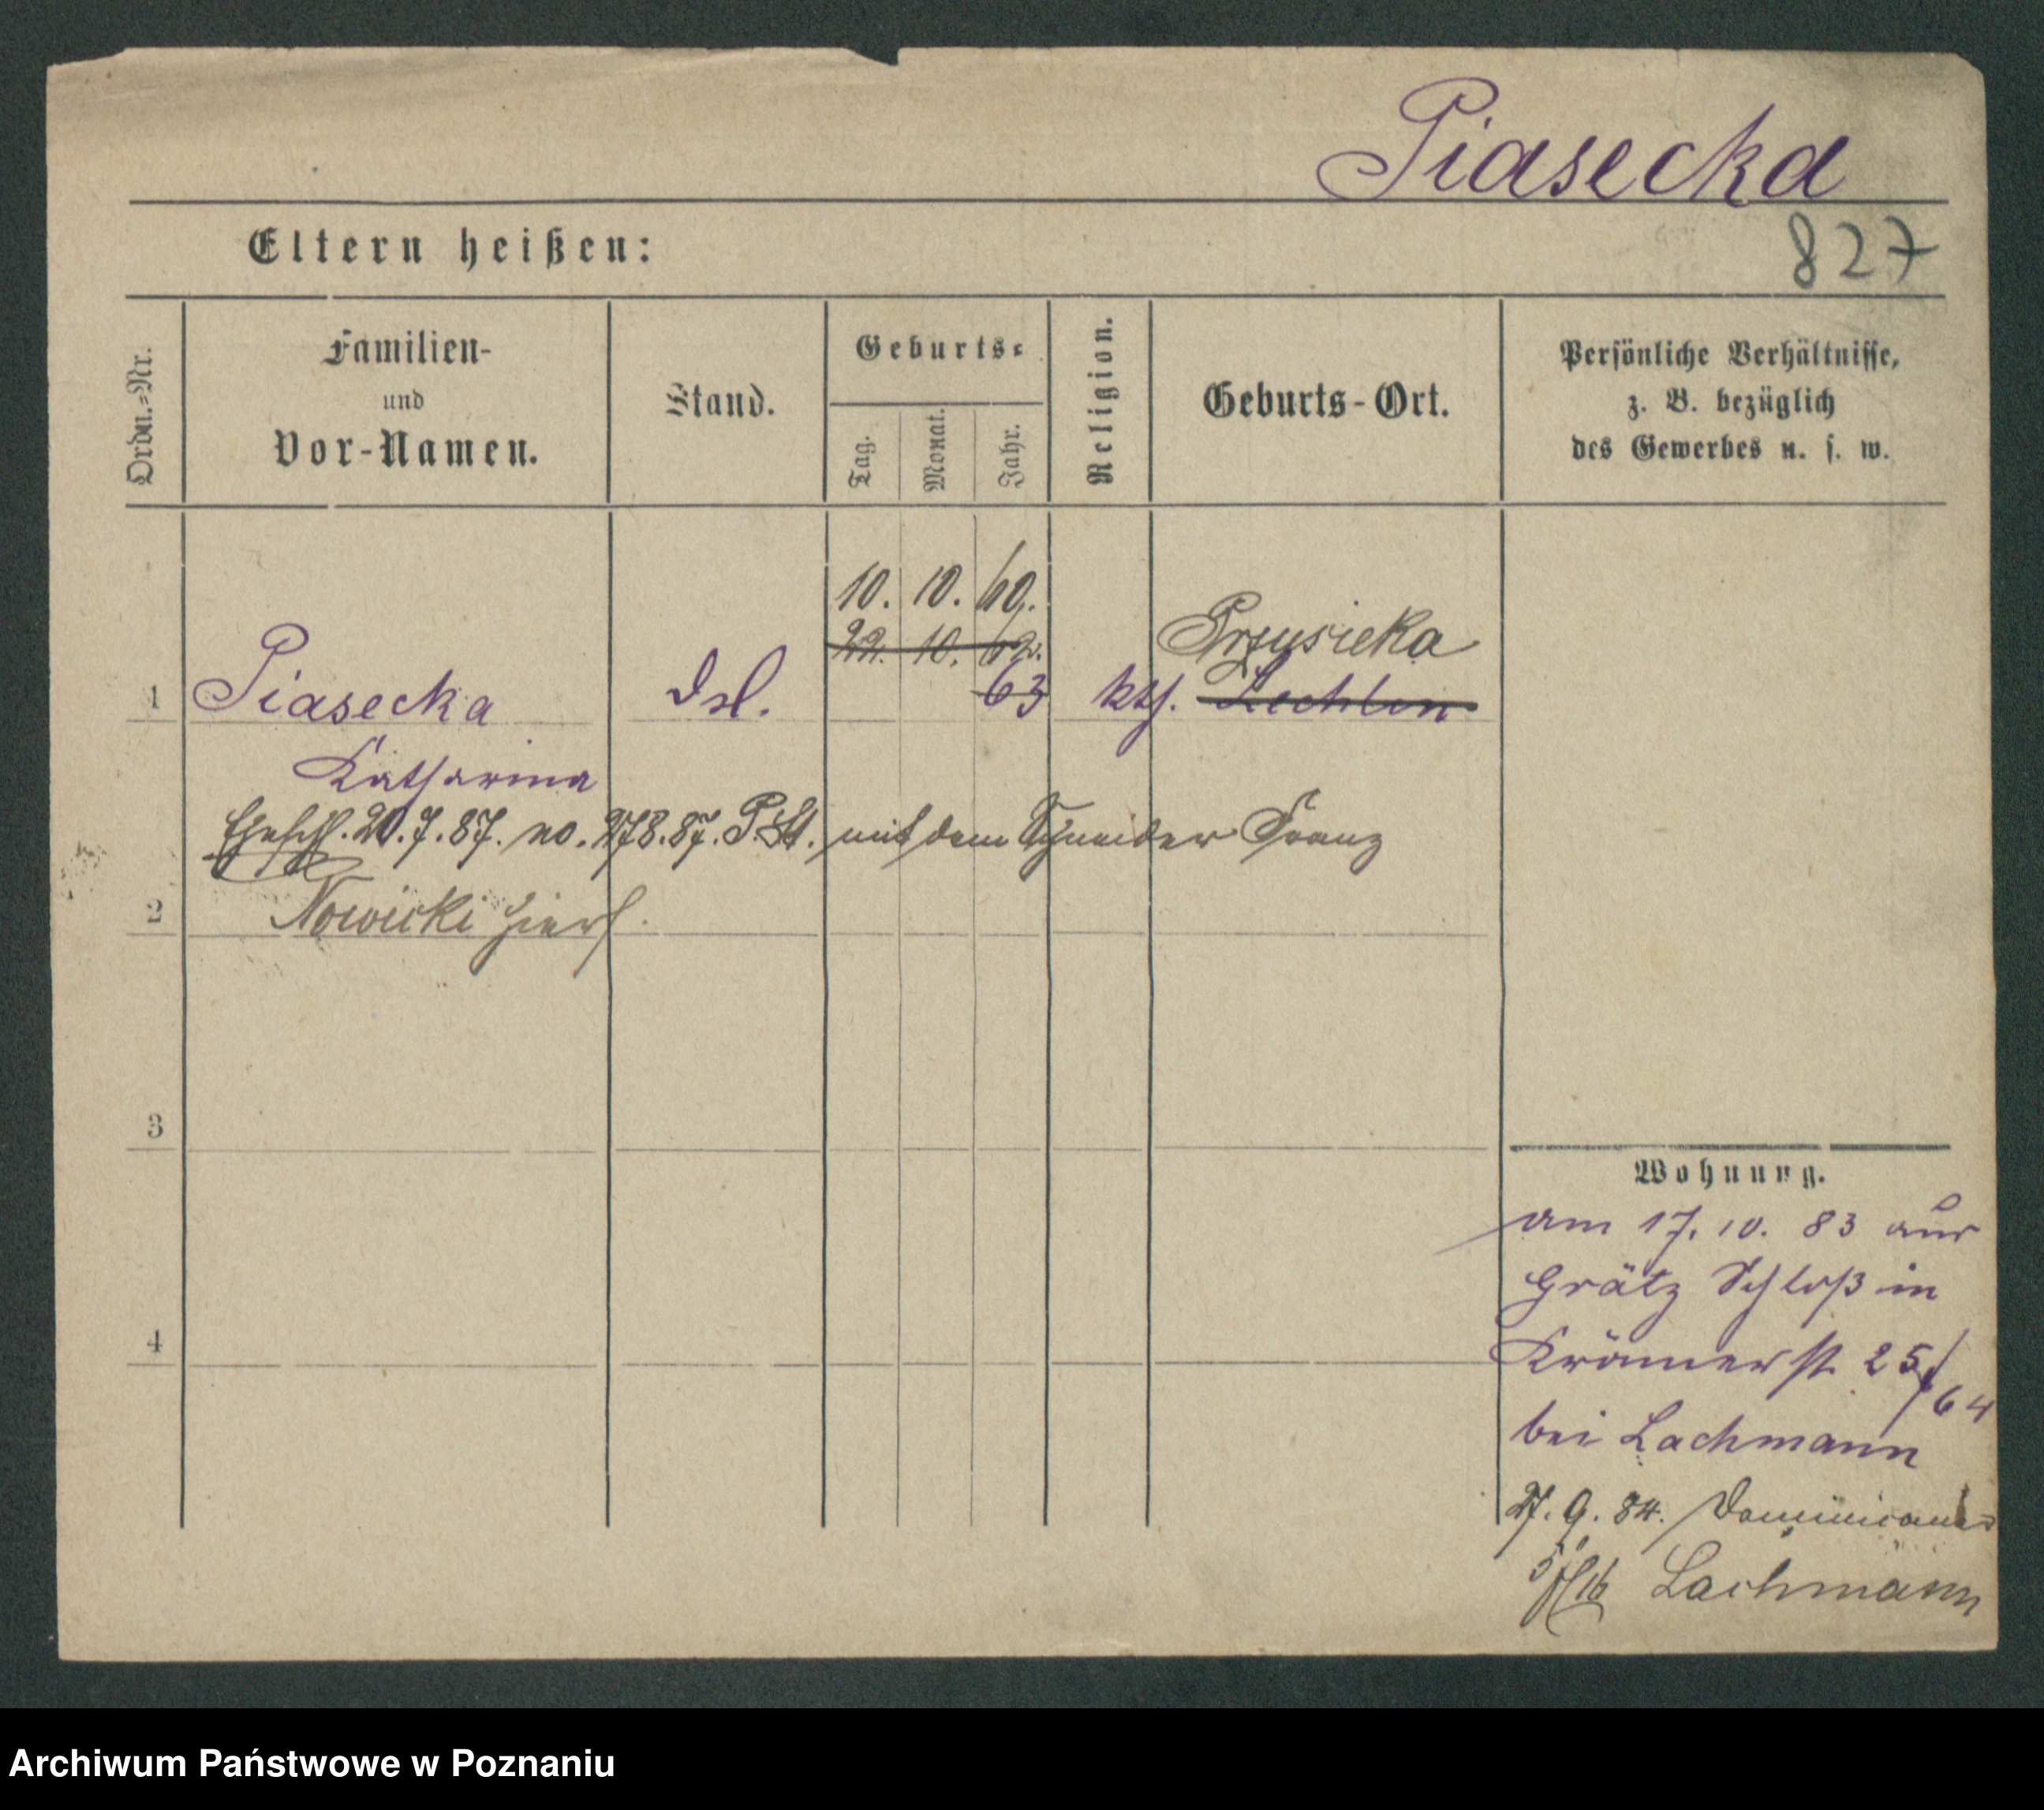 Piasecka
827
Eltern heißen:
Ordn.=Nr.
Familien-
und
Vor-Namen.
Stand.
Geburts=
Tag.
Monat.
Jahr.
Religion.
Geburts-Ort.
Persönliche Verhältnisse,
z. B. bezüglich
des Gewerbes u. s. w.
10. 10. 60.
22. 10. 62.
63
Przysieka
1 Piasecka kth. Lechlin
Katharina
Ehesch. 20.7.87. no. 278.87. P. St. mit dem Schneider Franz
2 Nowicki hiers.
3
4
Wohnung.
am 17. 10. 83 aus
Grätz Schloß in
Krämerst. 25/
64
bei Lachmann
27. 9. 84.
5/16 Lachmann
Archiwum Państwowe w Poznaniu